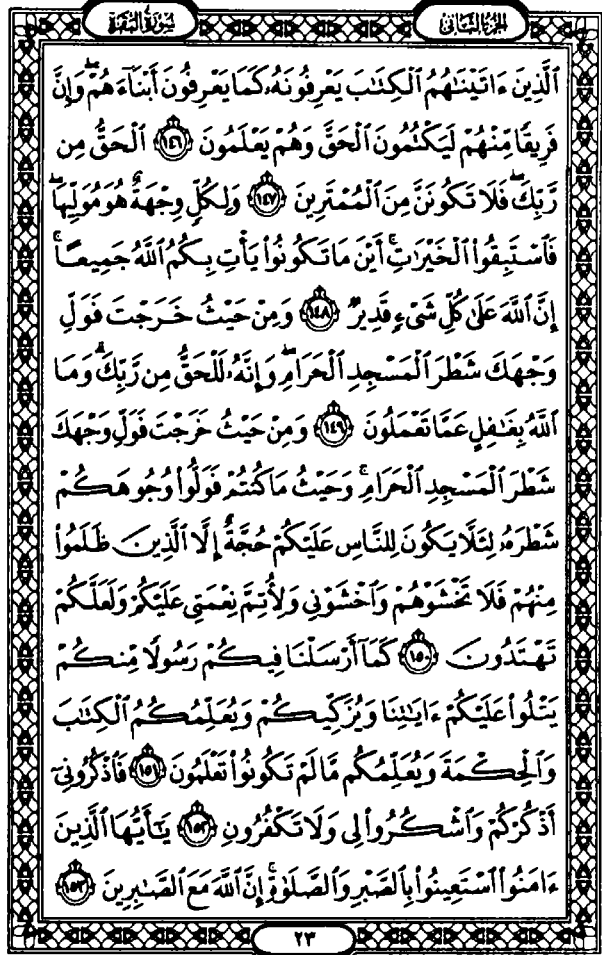 الجزء الثاني
سورة البقرة
ٱلَّذِينَ ءَاتَيۡنَٰهُمُ ٱلۡكِتَٰبَ يَعۡرِفُونَهُۥ كَمَا يَعۡرِفُونَ أَبۡنَآءَهُمۡۖ وَإِنَّ
فَرِيقٗا مِّنۡهُمۡ لَيَكۡتُمُونَ ٱلۡحَقَّ وَهُمۡ يَعۡلَمُونَ ١٤٦ ٱلۡحَقُّ مِن
رَّبِّكَۖ فَلَا تَكُونَنَّ مِنَ ٱلۡمُمۡتَرِينَ ١٤٧ وَلِكُلّٖ وِجۡهَةٌ هُوَ مُوَلِّيهَاۖ
فَٱسۡتَبِقُواْ ٱلۡخَيۡرَٰتِۚ أَيۡنَ مَا تَكُونُواْ يَأۡتِ بِكُمُ ٱللَّهُ جَمِيعًاۚ
إِنَّ ٱللَّهَ عَلَىٰ كُلِّ شَيۡءٖ قَدِيرٞ ١٤٨ وَمِنۡ حَيۡثُ خَرَجۡتَ فَوَلِّ
وَجۡهَكَ شَطۡرَ ٱلۡمَسۡجِدِ ٱلۡحَرَامِۖ وَإِنَّهُۥ لَلۡحَقُّ مِن رَّبِّكَۗ وَمَا
ٱللَّهُ بِغَٰفِلٍ عَمَّا تَعۡمَلُونَ ١٤٩ وَمِنۡ حَيۡثُ خَرَجۡتَ فَوَلِّ وَجۡهَكَ
شَطۡرَ ٱلۡمَسۡجِدِ ٱلۡحَرَامِۚ وَحَيۡثُ مَا كُنتُمۡ فَوَلُّواْ وُجُوهَكُمۡ
شَطۡرَهُۥ لِئَلَّا يَكُونَ لِلنَّاسِ عَلَيۡكُمۡ حُجَّةٌ إِلَّا ٱلَّذِينَ ظَلَمُواْ
مِنۡهُمۡ فَلَا تَخۡشَوۡهُمۡ وَٱخۡشَوۡنِي وَلِأُتِمَّ نِعۡمَتِي عَلَيۡكُمۡ وَلَعَلَّكُمۡ
تَهۡتَدُونَ ١٥٠ كَمَآ أَرۡسَلۡنَا فِيكُمۡ رَسُولٗا مِّنكُمۡ
يَتۡلُواْ عَلَيۡكُمۡ ءَايَٰتِنَا وَيُزَكِّيكُمۡ وَيُعَلِّمُكُمُ ٱلۡكِتَٰبَ
وَٱلۡحِكۡمَةَ وَيُعَلِّمُكُم مَّا لَمۡ تَكُونُواْ تَعۡلَمُونَ ١٥١ فَٱذۡكُرُونِيٓ
أَذۡكُرۡكُمۡ وَٱشۡكُرُواْ لِي وَلَا تَكۡفُرُونِ ١٥٢ يَٰٓأَيُّهَا ٱلَّذِينَ
ءَامَنُواْ ٱسۡتَعِينُواْ بِٱلصَّبۡرِ وَٱلصَّلَوٰةِۚ إِنَّ ٱللَّهَ مَعَ ٱلصَّٰبِرِينَ ١٥٣
٢٣